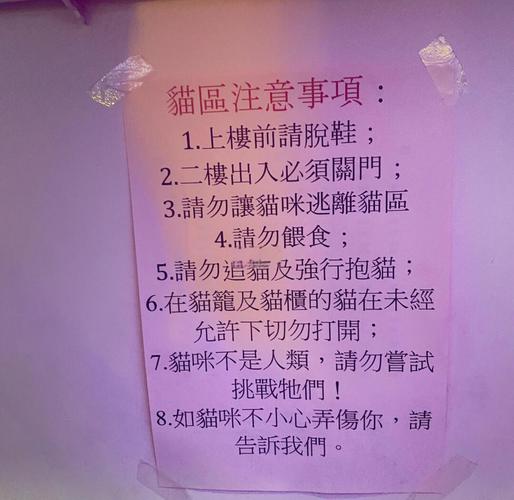 貓區注意事項：
1.上樓前請脫鞋；
2.二樓出入必須關門；
3.請勿讓貓咪逃離貓區
4.請勿餵食；
5.請勿追貓及強行抱貓；
6.在貓籠及貓櫃的貓在未經
允許下切勿打開；
7.貓咪不是人類，請勿嘗試
挑戰牠們！
8.如貓咪不小心弄傷你，請
告訴我們。